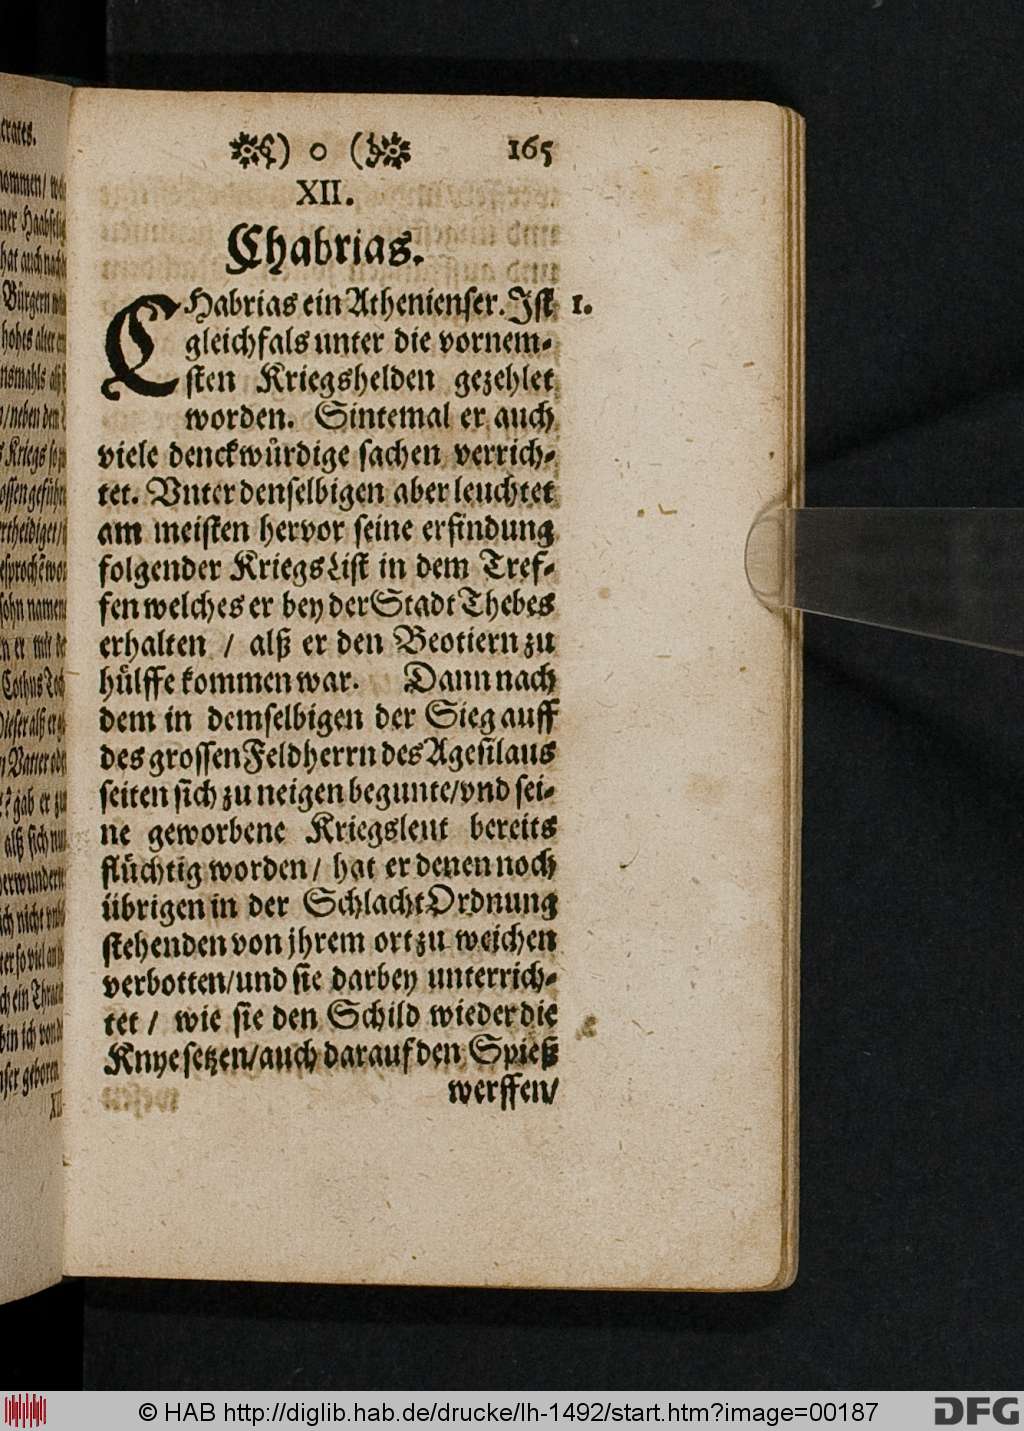 165
XII.
Chabrias.
CHabrias ein Athenienser. Jst 1.
gleichfals unter die vornem-
sten Kriegshelden gezehlet
worden. Sintemal er auch
viele denckwürdige sachen verrich-
tet. Vnter denselbigen aber leuchtet
am meisten hervor seine erfindung
folgender KriegsList in dem Tref-
fen welches er bey der Stadt Thebes
erhalten / alß er den Beotiern zu
hülffe kommen war. Dann nach
dem in demselbigen der Sieg auff
des grossen Feldherrn des Agesilaus
seiten sich zu neigen begunte/vnd sei-
ne geworbene Kriegsleut bereits
flüchtig worden / hat er denen noch
übrigen in der SchlachtOrdnung
stehenden von jhrem ort zu weichen
verbotten/und sie darbey unterrich-
tet / wie sie den Schild wieder die
Knye setzen/auch darauf den Spieß
werffen/
© HAB http://diglib.hab.de/drucke/lh-1492/start.htm?image=00187
DFG